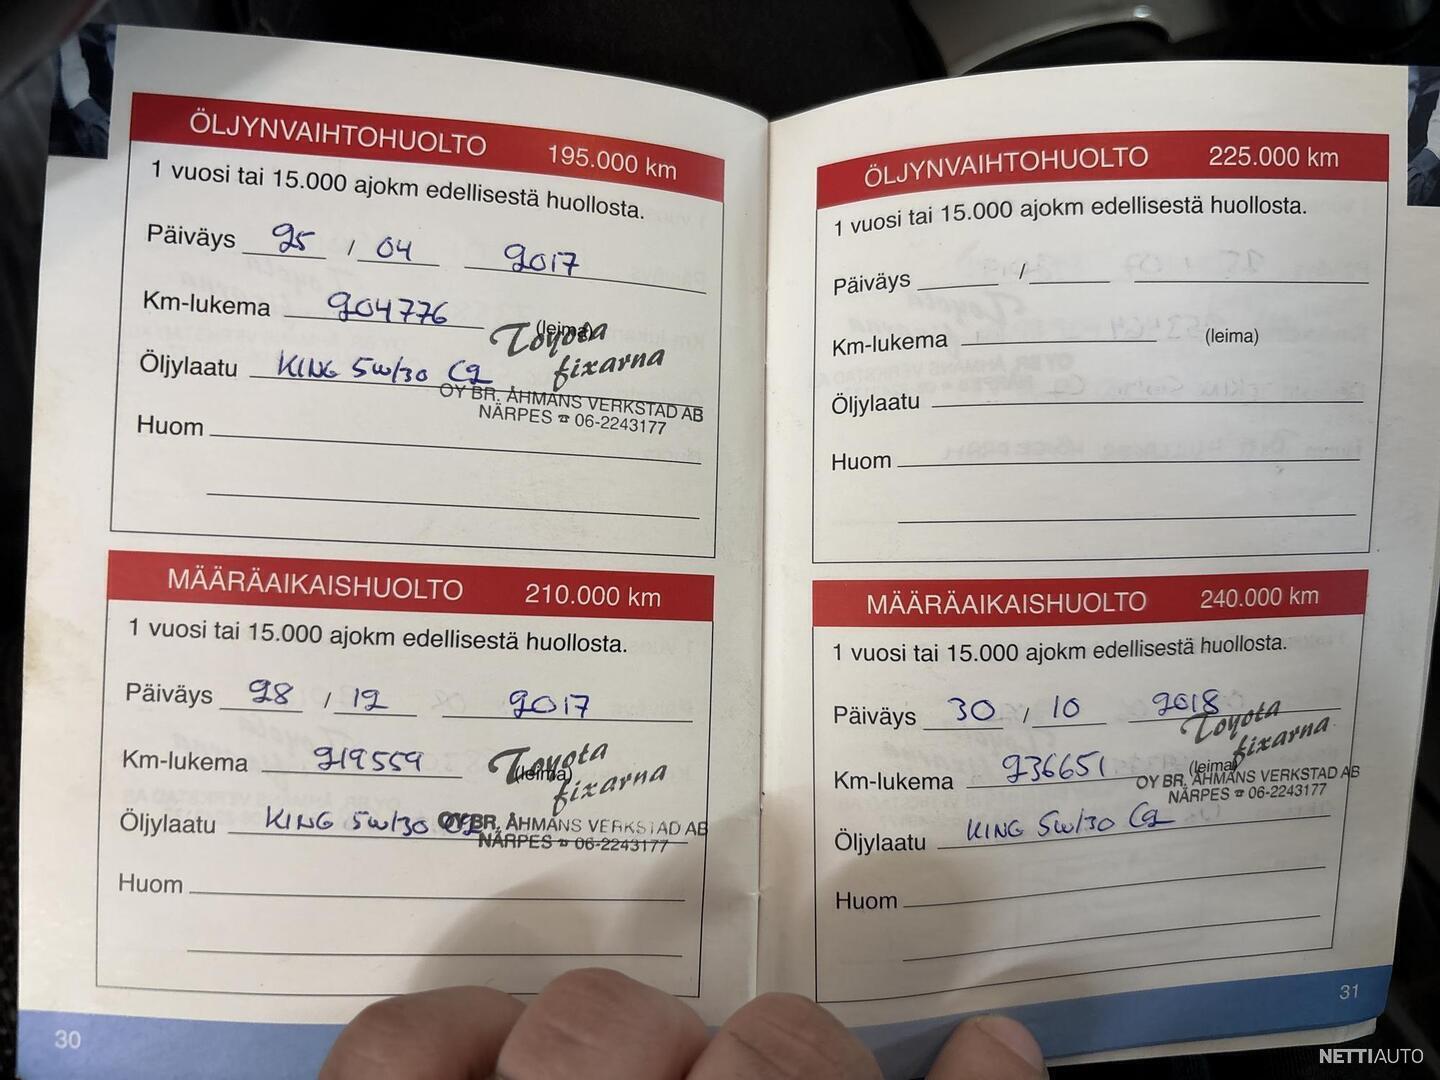 ÖLJYNVAIHTOHUOLTO 195.000 km
1 vuosi tai 15.000 ajokm edellisestä huollosta.
Päiväys 25 / 04 2017
Km-lukema 204776
(leima)
Toyota
fixarna
Öljylaatu KING 5W/30 C2
OY BR. ÅHMANS VERKSTAD AB
NÄRPES ☎ 06-2243177
Huom
MÄÄRÄAIKAISHUOLTO 210.000 km
1 vuosi tai 15.000 ajokm edellisestä huollosta.
Päiväys 28 / 12 2017
Km-lukema 219559
(leima)
Toyota
fixarna
Öljylaatu KING 5W/30 C2
OY BR. ÅHMANS VERKSTAD AB
NÄRPES ☎ 06-2243177
Huom
30
ÖLJYNVAIHTOHUOLTO 225.000 km
1 vuosi tai 15.000 ajokm edellisestä huollosta.
Päiväys /
Km-lukema (leima)
Öljylaatu
Huom
MÄÄRÄAIKAISHUOLTO 240.000 km
1 vuosi tai 15.000 ajokm edellisestä huollosta.
Päiväys 30 / 10 2018
Toyota
fixarna
Km-lukema 236651 (leima)
OY BR. ÅHMANS VERKSTAD AB
NÄRPES ☎ 06-2243177
Öljylaatu KING 5W/30 C2
Huom
31
NETTIAUTO